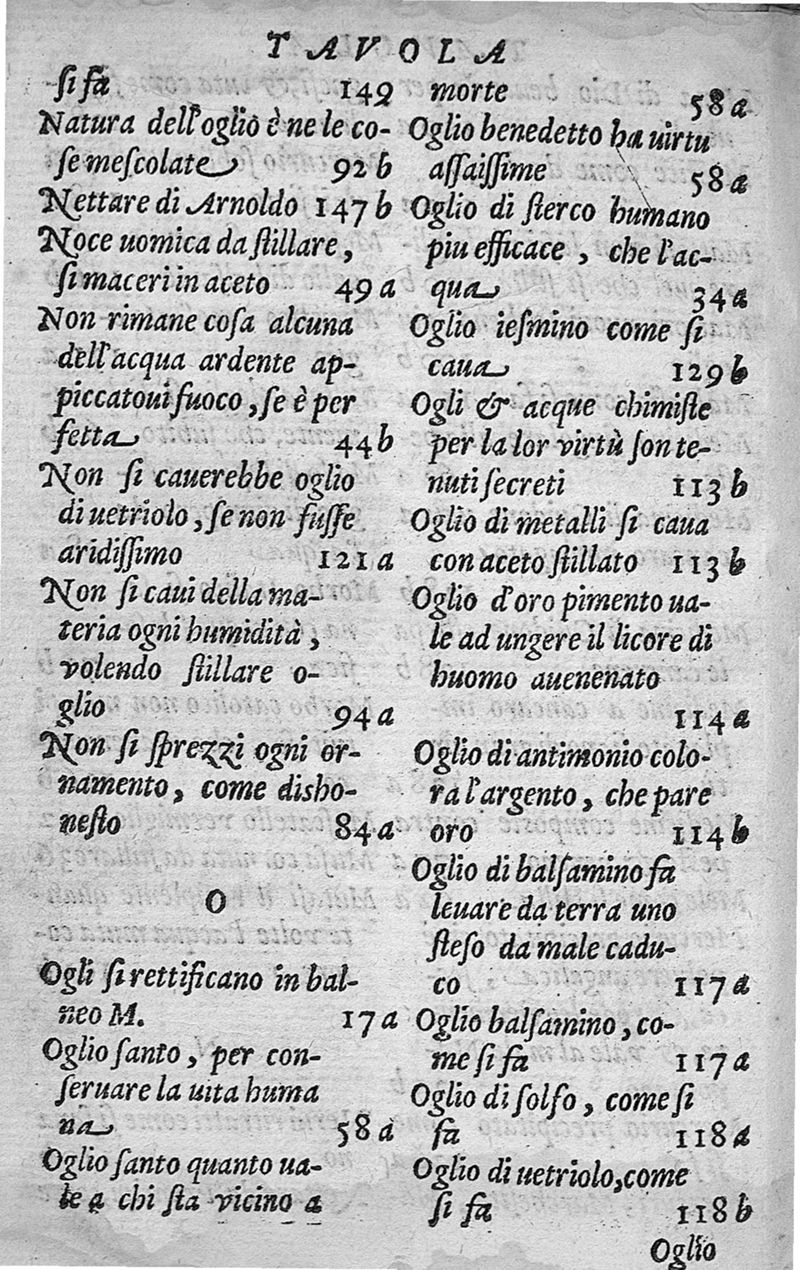 TAVOLA
ſi fa 149
Natura dell'oglio è ne le co-
ſe meſcolate 92 b
Nettare di Arnoldo 147 b
Noce uomica da ſtillare,
ſi maceri in aceto 49 a
Non rimane coſa alcuna
dell'acqua ardente ap-
piccatoui fuoco, ſe è per
fetta 44 b
Non ſi cauerebbe oglio
di uetriolo, ſe non fuſſe
aridiſſimo 121 a
Non ſi caui della ma-
teria ogni humidità,
volendo ſtillare o-
glio 94 a
Non ſi ſprezzi ogni or-
namento, come disho-
neſto 84 a
O
Ogli ſi rettificano in bal-
neo M. 17 a
Oglio ſanto, per con-
ſeruare la uita huma
na 58 a
Oglio ſanto quanto ua-
le a chi ſta vicino a
morte 58 a
Oglio benedetto ha uirtu
aſſaiſſime 58 a
Oglio di ſterco humano
piu efficace, che l'ac-
qua 34 a
Oglio ieſmino come ſi
caua 129 b
Ogli & acque chimiſte
per la lor virtù ſon te-
nuti ſecreti 113 b
Oglio di metalli ſi caua
con aceto ſtillato 113 b
Oglio d'oro pimento ua-
le ad ungere il licore di
huomo auenenato
114 a
Oglio di antimonio colo-
ra l'argento, che pare
oro 114 b
Oglio di balſamino fa
leuare da terra uno
ſteſo da male cadu-
co 117 a
Oglio balſamino, co-
me ſi fa 117 a
Oglio di ſolfo, come ſi
fa 118 a
Oglio di uetriolo, come
ſi fa 118 b
Oglio